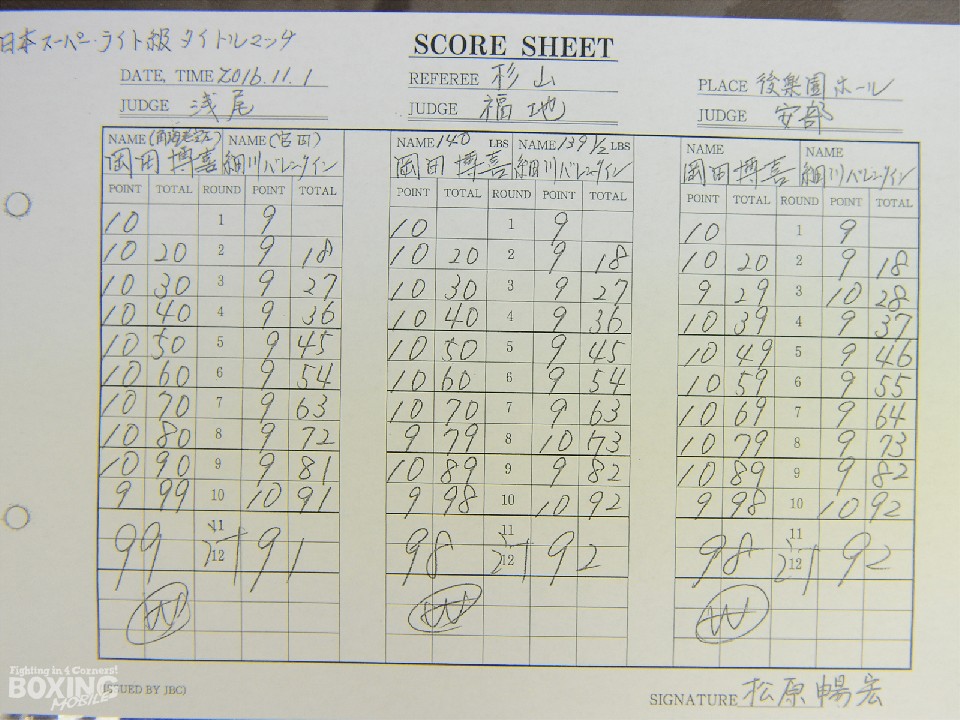 日本スーパー・ライト級 タイトルマッチ
SCORE SHEET
DATE, TIME 2016.11.1
REFEREE 杉山
PLACE 後楽園ホール
JUDGE 浅尾
JUDGE 福地
JUDGE 安部
NAME NAME (宮田) NAME 140 LBS NAME 139 1/2 LBS NAME NAME
岡田博喜 細川バレンタイン 岡田博喜 細川バレンタイン 岡田博喜 細川バレンタイン
POINT TOTAL ROUND POINT TOTAL POINT TOTAL ROUND POINT TOTAL POINT TOTAL ROUND POINT TOTAL
10 1 9 10 1 9 10 1 9
10 20 2 9 18 10 20 2 9 18 10 20 2 9 18
10 30 3 9 27 10 30 3 9 27 9 29 3 10 28
10 40 4 9 36 10 40 4 9 36 10 39 4 9 37
10 50 5 9 45 10 50 5 9 45 10 49 5 9 46
10 60 6 9 54 10 60 6 9 54 10 59 6 9 55
10 70 7 9 63 10 70 7 9 63 10 69 7 9 64
10 80 8 9 72 9 79 8 10 73 10 79 8 9 73
10 90 9 9 81 10 89 9 9 82 10 89 9 9 82
9 99 10 10 91 9 98 10 10 92 9 98 10 10 92
11 11 11
99 12 91 98 12 92 98 12 92
W W W
Fighting in 4 Corners!
BOXING
MOBILE
ISSUED BY JBC)
SIGNATURE 松原暢宏